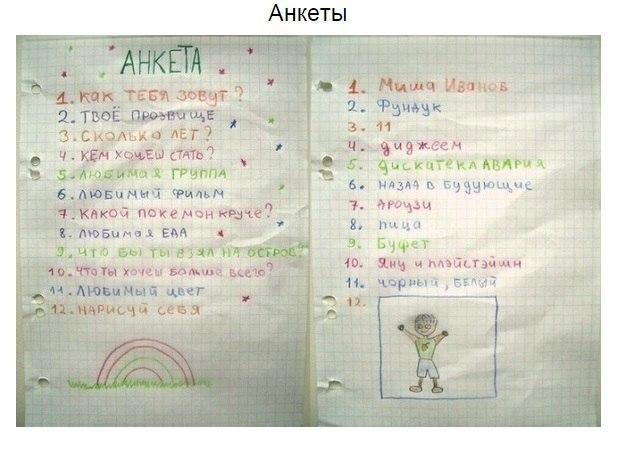 Анкеты
АНКЕТА
1. КАК ТЕБЯ ЗОВУТ?
2. ТВОЁ ПРОЗВИЩЕ
3. СКОЛЬКО ЛЕТ?
4. КЕМ ХОЧЕШ СТАТЬ?
5. ЛЮБИМАЯ ГРУППА
6. ЛЮБИМЫЙ ФИЛЬМ
7. КАКОЙ ПОКЕМОН КРУЧЕ?
8. ЛЮБИМАЯ ЕДА
9. ЧТО БЫ ТЫ ВЗЯЛ НА ОСТРОВ?
10. ЧТО ТЫ ХОЧЕШ БОЛЬШЕ ВСЕГО?
11. ЛЮБИМЫЙ ЦВЕТ
12. НАРИСУЙ СЕБЯ
1. Миша Иванов
2. Фундук
3. 11
4. диджеем
5. ДИСКАТЕКА АВАРИЯ
6. НАЗАД В БУДУЮЩИЕ
7. АРОУЗИ
8. пица
9. Буфет
10. Яну и плэйстэйшн
11. чорный, БЕЛЫЙ
12.